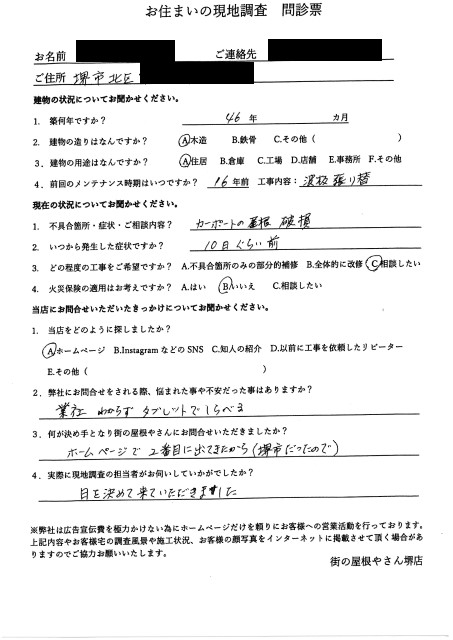 お住まいの現地調査 問診票
お名前 ご連絡先
ご住所 堺市北区
建物の状況についてお聞かせください。
1. 築何年ですか? 46 年 カ月
2. 建物の造りはなんですか? A木造 B.鉄骨 C.その他( )
3. 建物の用途はなんですか? A住居 B.倉庫 C.工場 D.店舗 E.事務所 F.その他
4. 前回のメンテナンス時期はいつですか? 16 年前 工事内容: 波板張り替
現在の状況についてお聞かせください。
1. 不具合箇所・症状・ご相談内容? カーポートの屋根 破損
2. いつから発生した症状ですか? 10日ぐらい前
3. どの程度の工事をご希望ですか? A.不具合箇所のみの部分的補修 B.全体的に改修 C相談したい
4. 火災保険の適用はお考えですか? A.はい Bいいえ C.相談したい
当店にお問合せいただいたきっかけについてお聞かせください。
1. 当店をどのように探しましたか?
Aホームページ B.InstagramなどのSNS C.知人の紹介 D.以前に工事を依頼したリピーター
E.その他( )
2. 弊社にお問合せをされる際、悩まれた事や不安だった事はありますか?
業社 わからず タブレットでしらべる
3. 何が決め手となり街の屋根やさんにお問合せいただきましたか?
ホームページで 2番目に出てきたから(堺市だったので)
4. 実際に現地調査の担当者がお伺いしていかがでしたか?
日を決めて来ていただきました
※弊社は広告宣伝費を極力かけない為にホームページだけを頼りにお客様への営業活動を行っております。
上記内容やお客様宅の調査風景や施工状況、お客様の顔写真をインターネットに掲載させて頂く場合があ
りますのでご協力お願いいたします。
街の屋根やさん堺店